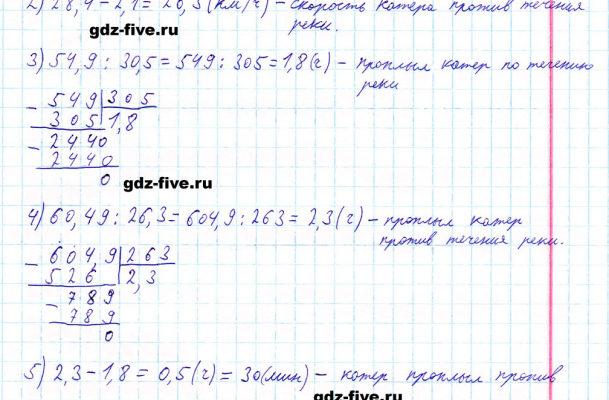 2) 28,4 - 2,1 = 26,3 (км/ч) - скорость катера против течения
реки.
gdz-five.ru
3) 54,9 : 30,5 = 549 : 305 = 1,8 (ч) - проплыл катер по течению
реки
- 549 | 305
305 1,8
- 2440
2440
0
gdz-five.ru
4) 60,49 : 26,3 = 604,9 : 263 = 2,3 (ч) - проплыл катер
против течения реки.
- 604,9 | 263
526 2,3
- 789
789
0
5) 2,3 - 1,8 = 0,5 (ч) = 30 (мин) - катер проплыл против
gdz-five.ru